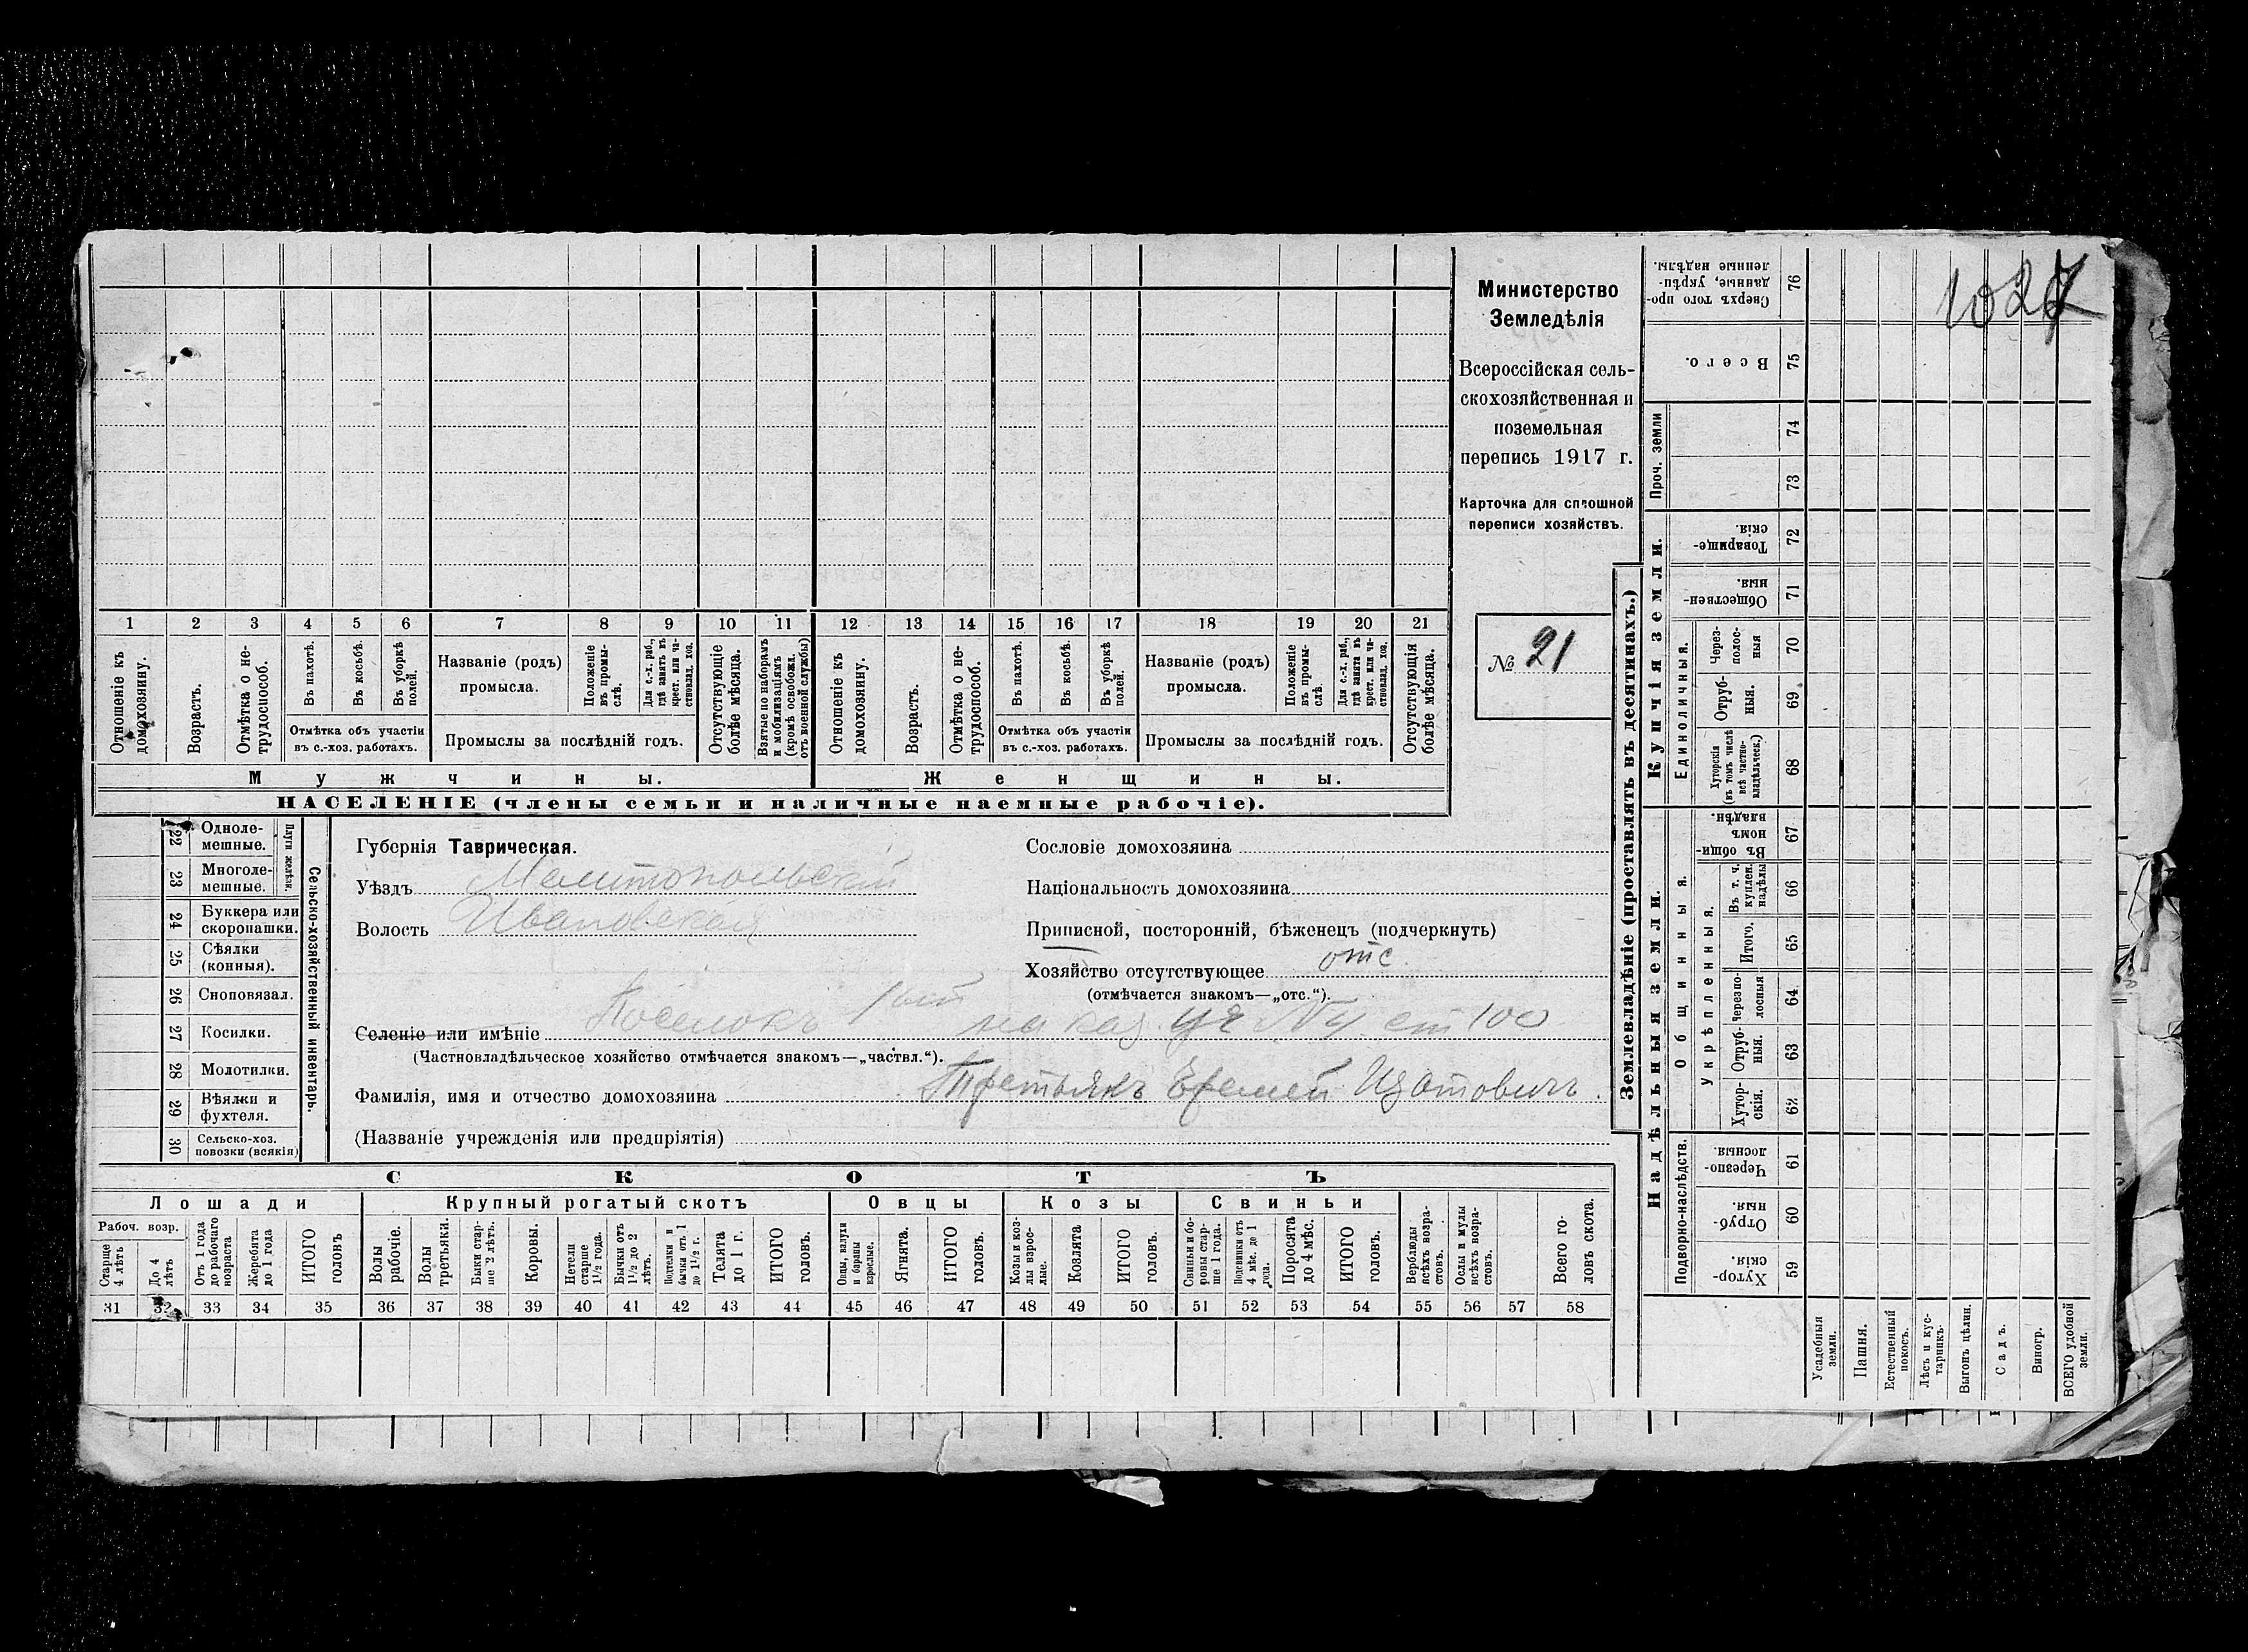 Министерство
Земледѣлія
Всероссійская сель-
скохозяйственная и
поземельная
перепись 1917 г.
Карточка для сплошной
переписи хозяйствъ.
№ 21
1 2 3 4 5 6 7 8 9 10 11 12 13 14 15 16 17 18 19 20 21
Отношеніе къ домохозяину.
Возрастъ.
Отмѣтка о не-трудоспособ.
Въ пахотѣ.
Въ косьбѣ.
Въ уборкѣ полей.
Отмѣтка объ участіи
въ с.-хоз. работахъ.
Названіе (родъ)
промысла.
Положеніе въ промы-слѣ.
Для с.-х. раб., гдѣ занятъ въ крест. или ча-стновлад. хоз.
Промыслы за послѣдній годъ.
Отсутствующіе болѣе мѣсяца.
Взятые по наборамъ и мобилизаціямъ (кромѣ освобожд. отъ военной службы)
Отношеніе къ домохозяину.
Возрастъ.
Отмѣтка о не-трудоспособ.
Въ пахотѣ.
Въ косьбѣ.
Въ уборкѣ полей.
Отмѣтка объ участіи
въ с.-хоз. работахъ.
Названіе (родъ)
промысла.
Положеніе въ промы-слѣ.
Для с.-х. раб., гдѣ занята въ крест. или ча-стновлад. хоз.
Промыслы за послѣдній годъ.
Отсутствующія болѣе мѣсяца.
Мужчины.
Женщины.
НАСЕЛЕНІЕ (члены семьи и наличные наемные рабочіе).
22 Одноле-мешные.
23 Многоле-мешные.
Плуги желѣзн.
24 Буккера или скоропашки.
25 Сѣялки (конныя).
26 Сноповязал.
27 Косилки.
28 Молотилки.
29 Вѣялки и фухтеля.
30 Сельско-хоз. повозки (всякія)
Сельско-хозяйственный инвентарь.
Губернія Таврическая.
Уѣздъ Мелитопольскій
Волость Ивановская
Сословіе домохозяина
Національность домохозяина
Приписной, посторонній, бѣженец (подчеркнуть)
Хозяйство отсутствующее отс.
(отмѣчается знакомъ—„отс.“).
Селеніе или имѣніе Поселокъ на каз. уч № ст 100
(Частновладѣльческое хозяйство отмѣчается знакомъ—„частвл.“).
Фамилія, имя и отчество домохозяина Третьякъ Еремей Изотовичъ.
(Названіе учрежденія или предпріятія)
СКОТЪ
Лошади
Крупный рогатый скотъ
Овцы
Козы
Свиньи
Рабоч. возр.
Старше 4 лѣтъ
До 4 лѣтъ
Отъ 1 года до рабочаго возраста
Жеребята до 1 года
ИТОГО головъ
Волы рабочіе.
Волы третьяки.
Быки стар-ше 2 лѣтъ.
Коровы.
Нетели старше 1½ года.
Бычки отъ 1½ до 2 лѣтъ.
Подтелки и бычки отъ 1 до 1½ г.
Телята до 1 г.
ИТОГО головъ.
Овцы, валухи и бараны взрослые.
Ягнята.
ИТОГО головъ.
Козы и коз-лы взрос-лые.
Козлята
ИТОГО головъ.
Свиньи и бо-ровы стар-ше 1 года.
Подсвинки отъ 4 мѣс. до 1 года.
Поросята до 4 мѣс.
ИТОГО головъ.
Верблюды всѣхъ возра-стовъ.
Ослы и мулы всѣхъ возра-стовъ.
Всего го-ловъ скота.
31 32 33 34 35 36 37 38 39 40 41 42 43 44 45 46 47 48 49 50 51 52 53 54 55 56 57 58
Землевладѣніе (проставлять въ десятинахъ.)
Надѣльныя земли.
Купчія земли.
Проч. земли
Подворно-наслѣдств.
Общинныя.
Укрѣпленныя.
Единоличныя.
76 Сверхъ того про-данные, укрѣп-ленные надѣлы.
75 Всего.
74
73
72 Товарище-скія.
71 Обществен-ныя.
70 Через-полос-ныя
69 Отруб-ныя.
68 Хуторскія (въ томъ числѣ всѣ частно-владѣльческ.)
67 Въ общин-номъ владѣн.
66 Въ т. ч. куплен. надѣлы
65 Итого.
64 Черезпо-лосныя
63 Отруб-ныя.
62 Хутор-скія.
61 Черезпо-лосныя.
60 Отруб-ныя.
59 Хутор-скія.
Усадебныя земли.
Пашня.
Естественный покосъ.
Лѣсъ и кус-тарникъ.
Выгонъ цѣлин.
Садъ.
Виногр.
ВСЕГО удобной земли.